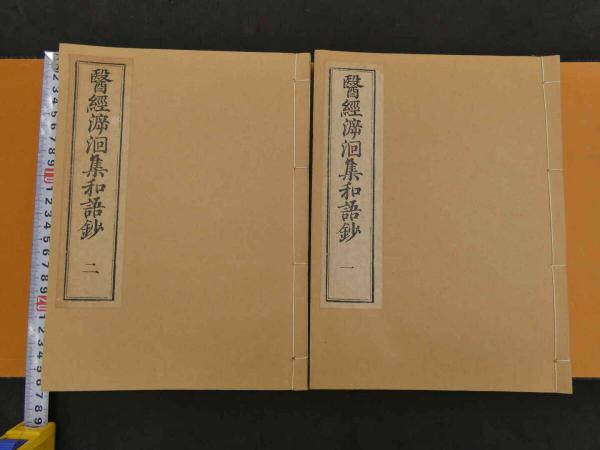 醫經㴑洄集和語鈔
一
醫經㴑洄集和語鈔
二
2 3 4 5 6 7 8 9 10 1 2 3 4 5 6 7 8 9 20 1 2 3 4 5 6 7 8 9